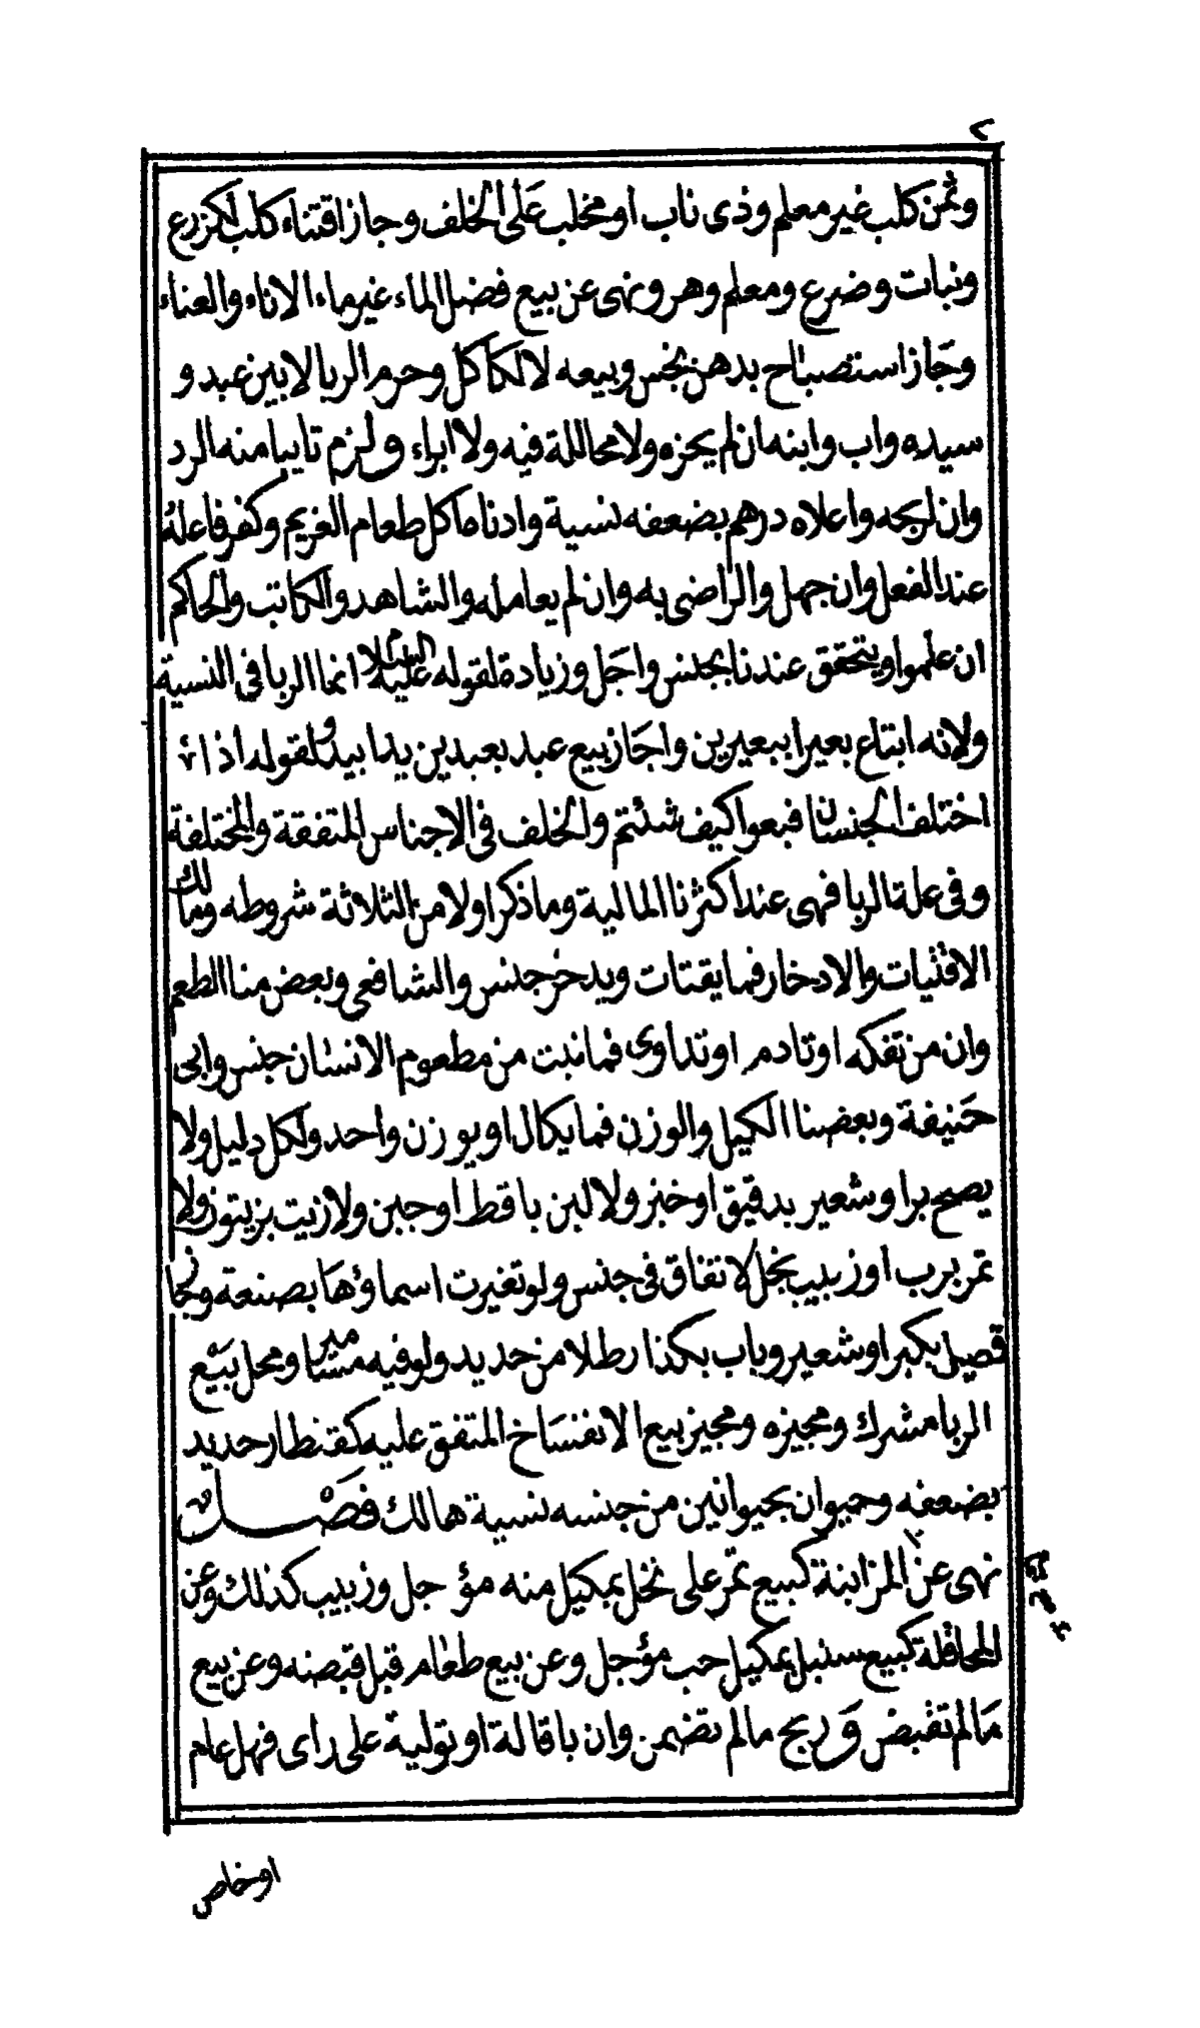 ٢
وثمن كلب غير معلم وذى ناب او مخلب على الخلف وجاز اقتناء كلب لكزرع
ونبات وضرع ومعلم وهر ونهى عن بيع فضل الماء غير ماء الاناء والعناء
وجاز استصباح بدهن نجس وبيعه لا لكاكل وحرم الربا لا بين عبد و
سيده واب وابنه ان لم يحزه ولا محاللة فيه ولا ابراء ولزم تايبا منه الرد
وان لربحه واعلاه درهم بضعفه نسية وادناه اكل طعام الغريم وكفر فاعله
عند الفعل وان جهل والراضى به وان لم يعامله والشاهد والكاتب والحاكم
ان علموا ويتحقق عندنا بجنس واجل وزيادة لقوله عليه السلام انما الربا فى النسية
ولانه ابتاع بعيرا ببعيرين واجاز بيع عبد بعبدين يدا بيد ولقوله اذا
اختلف الجنسان فبعوا كيف شئتم والخلف فى الاجناس المتفقة والمختلفة
وفى علة الربا فهى عند اكثرنا المالية وما ذكر اولا من الثلاثة شروطه ومالك
الاقتيات والادخار فما يقتات ويدخر جنس والشافعى وبعض منا الطعم
وان من تفكه او تادم او تداوى فما نبت من مطعوم الانسان جنس وابى
حنيفة وبعضنا الكيل والوزن فما يكال او يوزن واحد ولكل دليل ولا
يصح برا وشعير بدقيق او خبز ولا لبن باقط او جبن ولا زيت بزيتون ولا
تمر برب او زبيب بخل لاتفاق فى جنس ولو تغيرت اسماؤها بصنعة ونجا
قصيل بكبر او شعير وباب بكذا رطلا من حديد ولو فيه مسامير ومحل بيع
الربا مشرك ومجيزه ومجيز بيع الانفساخ المتفق عليه كقنطار حديد
بضعفه وحيوان بحيوانين من جنسه نسية هالك فصل
نهى عن المزابنة كبيع تمر على نخل بمكيل منه مؤجل وزبيب كذلك وعن
المحاقلة كبيع سنبل بمكيل حب مؤجل وعن بيع طعام قبل قبضه وعن بيع
مالم تقبض وربح مالم تضمن وان باقالة او تولية على راى فهل عام
او خاص